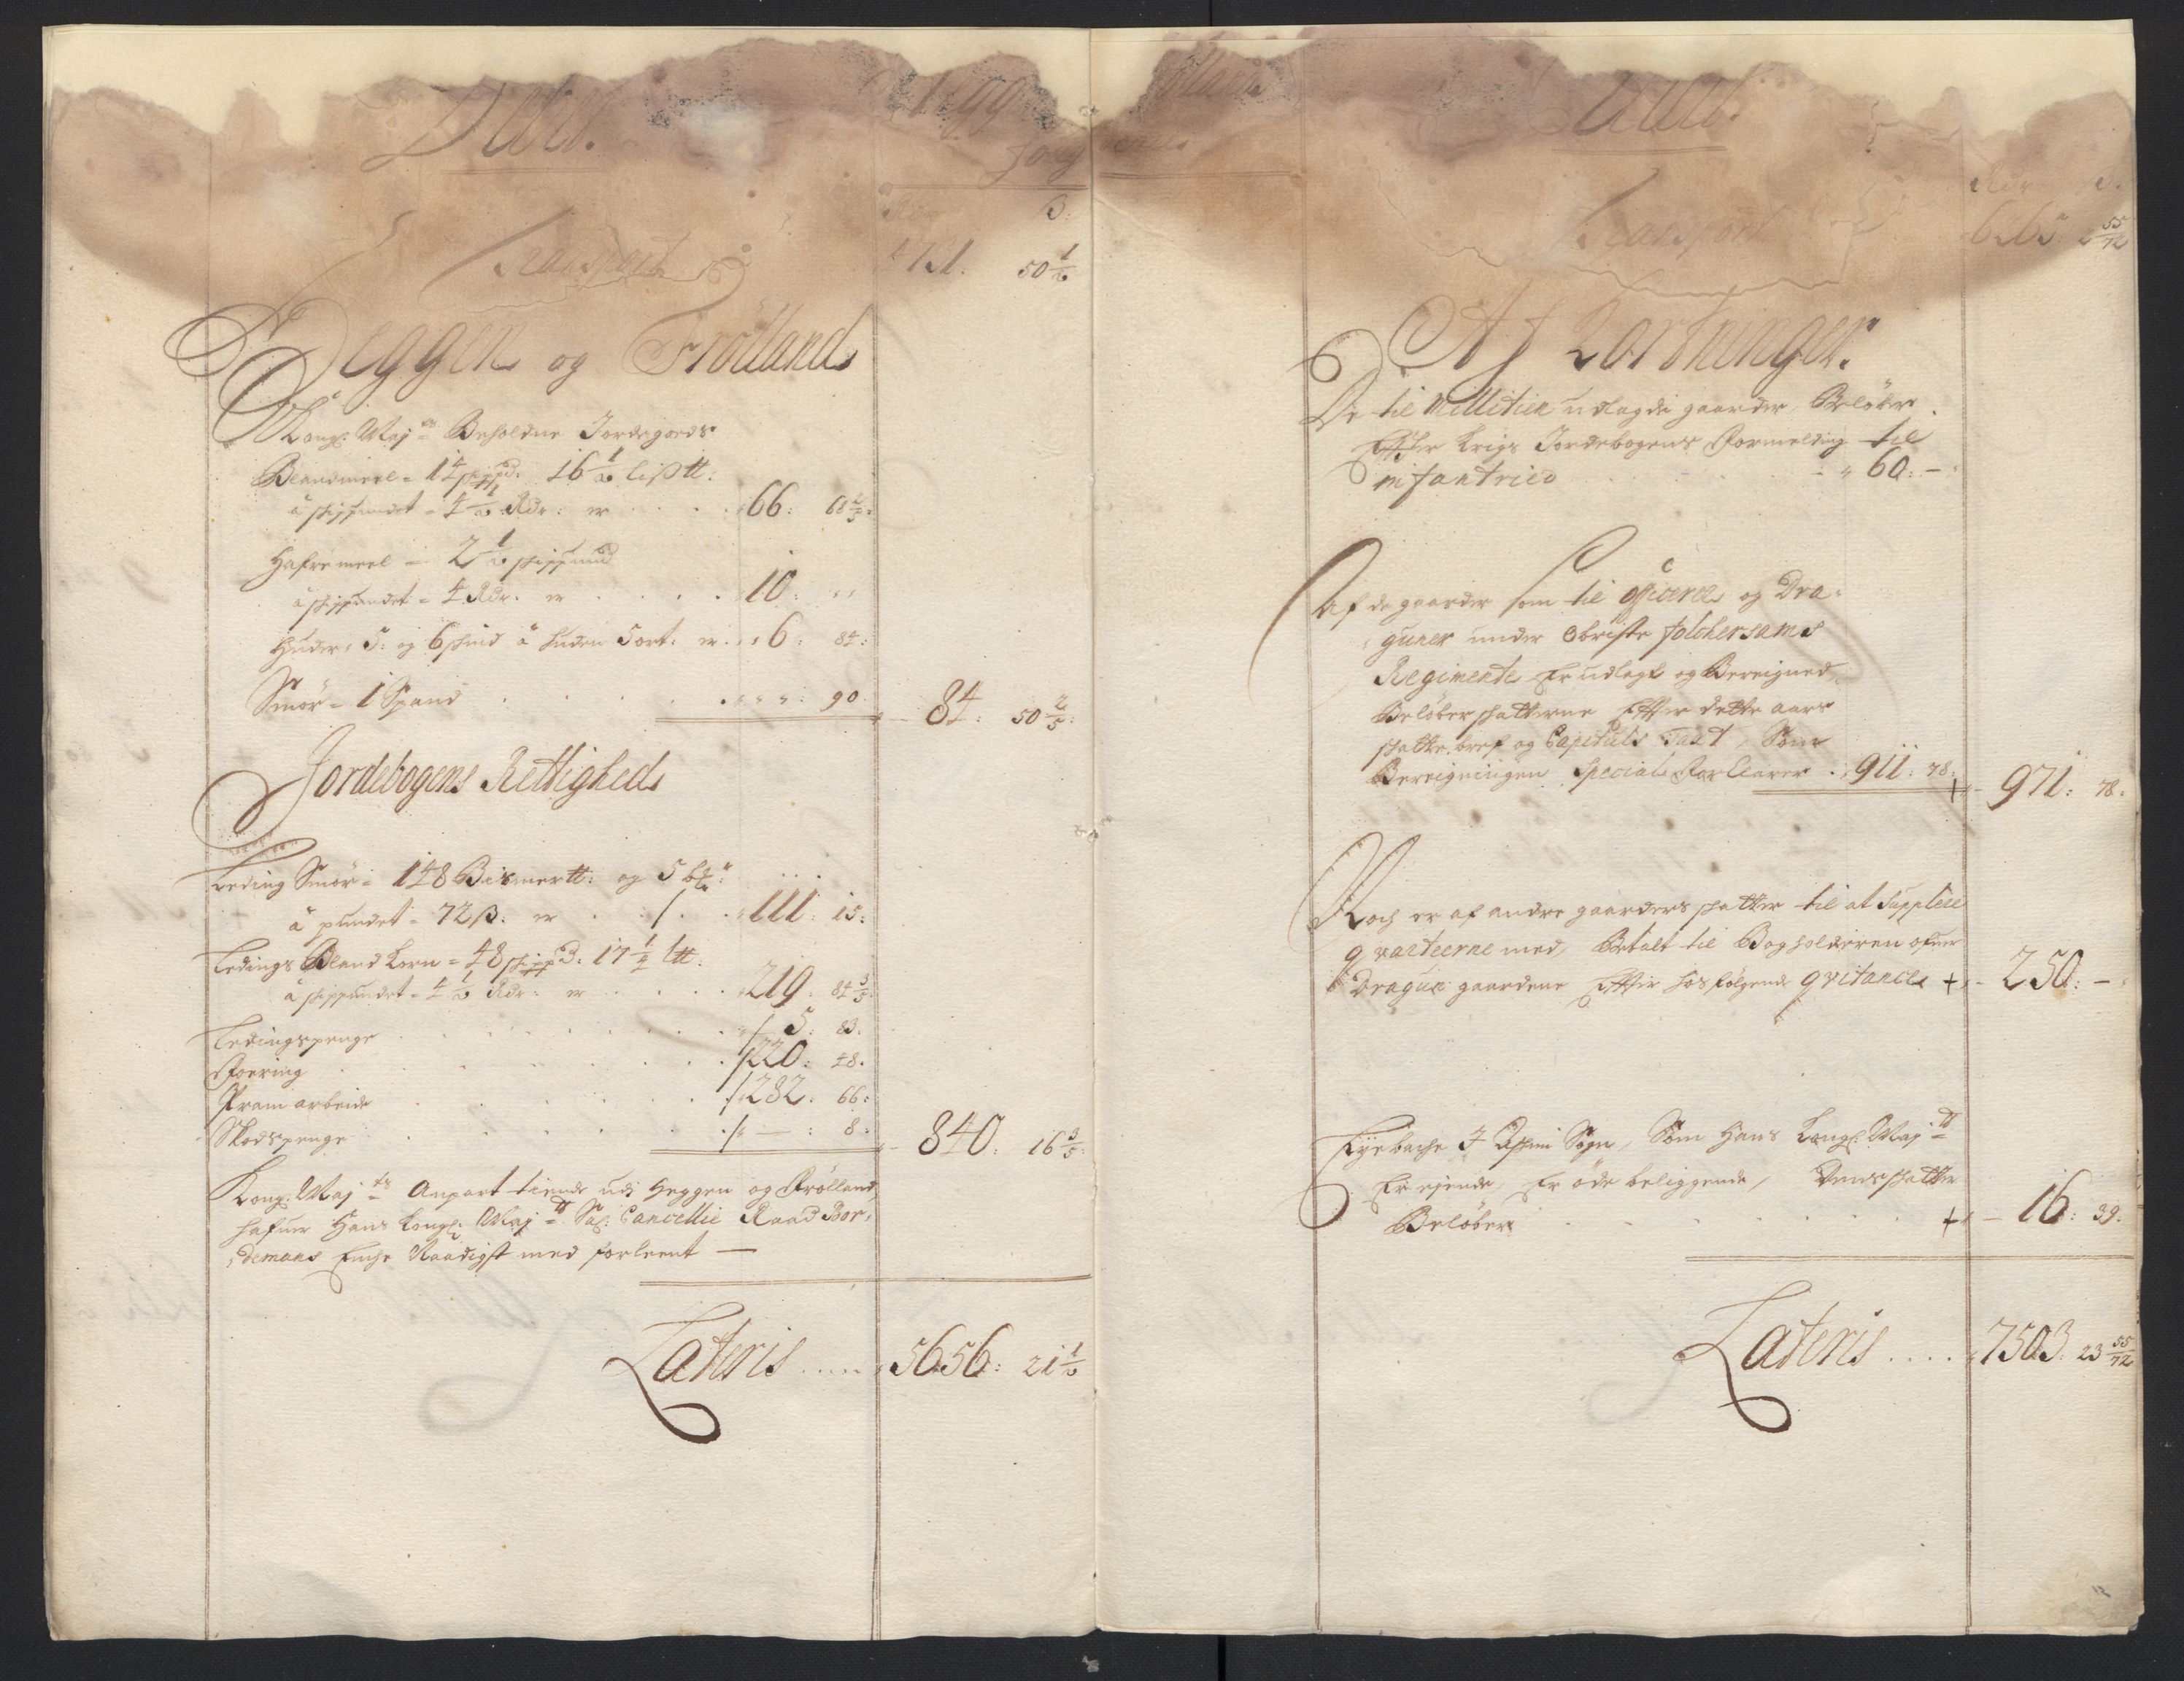 Debet.
Transport
4731. 50 1/2
Heggen og Frölland
Kongl: Maj:ts Beholdne Jordegods
Blandmeel = 14 skippd: 16 1/2 lisp℔:
â skippundet = 4 1/2 Rdr: er . . . 66: 68 2/5:
Hafremeel = 2 1/2 skippund
â skippundet = 4 Rdr. er . . . 10: " "
Huder, 5: og 6 skind â huden 5 ort: er . . 6: 84:
Smör = 1 Spand . . . " " " : 90
84: 50 2/5:
Jordebogens Rettighed
Leding Smör = 148 Bismer℔: og 5
â pundet = 72 β: er . . . 111: 15:
Ledings Bland Korn = 48 skippd: 17 1/4 l℔:
â skippundet = 4 1/2 Rdr: er . . . 219: 84 3/5:
Ledingspenge . . . 5: 83:
Foering . . . 220: 48.
Fram arbeide . . . 282: 66:
Skodspenge . . . — : 8:
840: 16 3/5:
Kongl: Maj:ts Anpart tiende udj Heggen og Frölland,
hafuer Hans Kongl: Maj:tt Sal: Cancellie Raad Bor,
demans Enche Naadigst med forleent —
Lateris .... 5656: 21 1/2
Transport
Rdr β.
55/72
Af Kortninger.
De til Militien udlagde gaarder, Beløber
Efter Krigs Jordebogens Formelding til
infanteried . . . 60: —
Af de gaarder som til Officerer og Dra,
guner under Obriste Folchersams
Regimente Er udlagt og Bereigned,
Beløber skatterne Efter dette aars
skatte bref og Capituls Taxt, Som
Bereigningen Special Forklarer . 911: 78:
971: 78:
Noch er af andre gaarders skatter til at Supplere
qvarteerne med, Betalt til Bogholderen ofuer
Dragun gaardene Efter hosfølgende qvitance + 250: —
Eyebache I Askim Sogn, Som Hans Kongl: Maj:tt
Er ejende, Er öde beliggende, Dens skatter
Beløber . . . + 16: 39:
Lateris .... 7503: 23 55/72